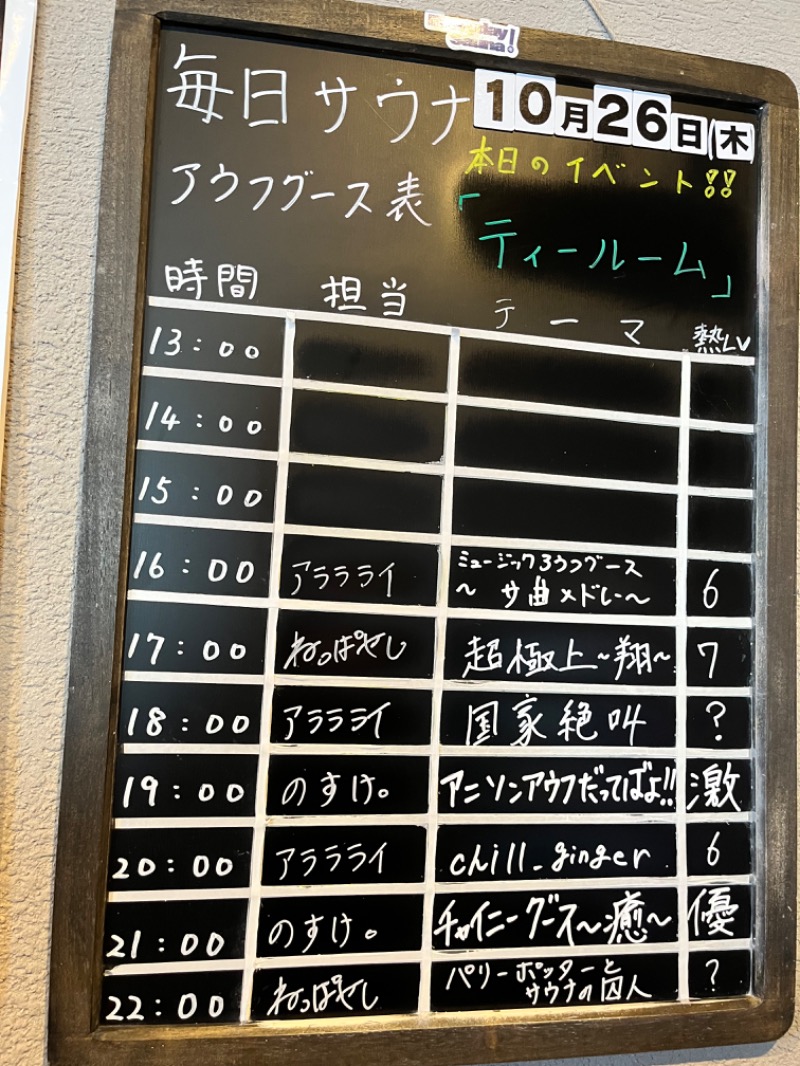 Everyday Sauna!
毎日サウナ 10月26日(木)
アウフグース表
本日のイベント!!
「ティールーム」
時間 担当 テーマ 熱LV
13:00
14:00
15:00
16:00 アラララライ ミュージックアウフグース
～サ曲メドレー～ 6
17:00 ねっぱやし 超極上～翔～ 7
18:00 アララライ 国家絶叫 ?
19:00 のすけ。 アニソンアウフだってばよ!! 激
20:00 アララライ chill_ginger 6
21:00 のすけ。 チャイニーグース～癒～ 優
22:00 ねっぱやし パリーポッターと
サウナの囚人 ?